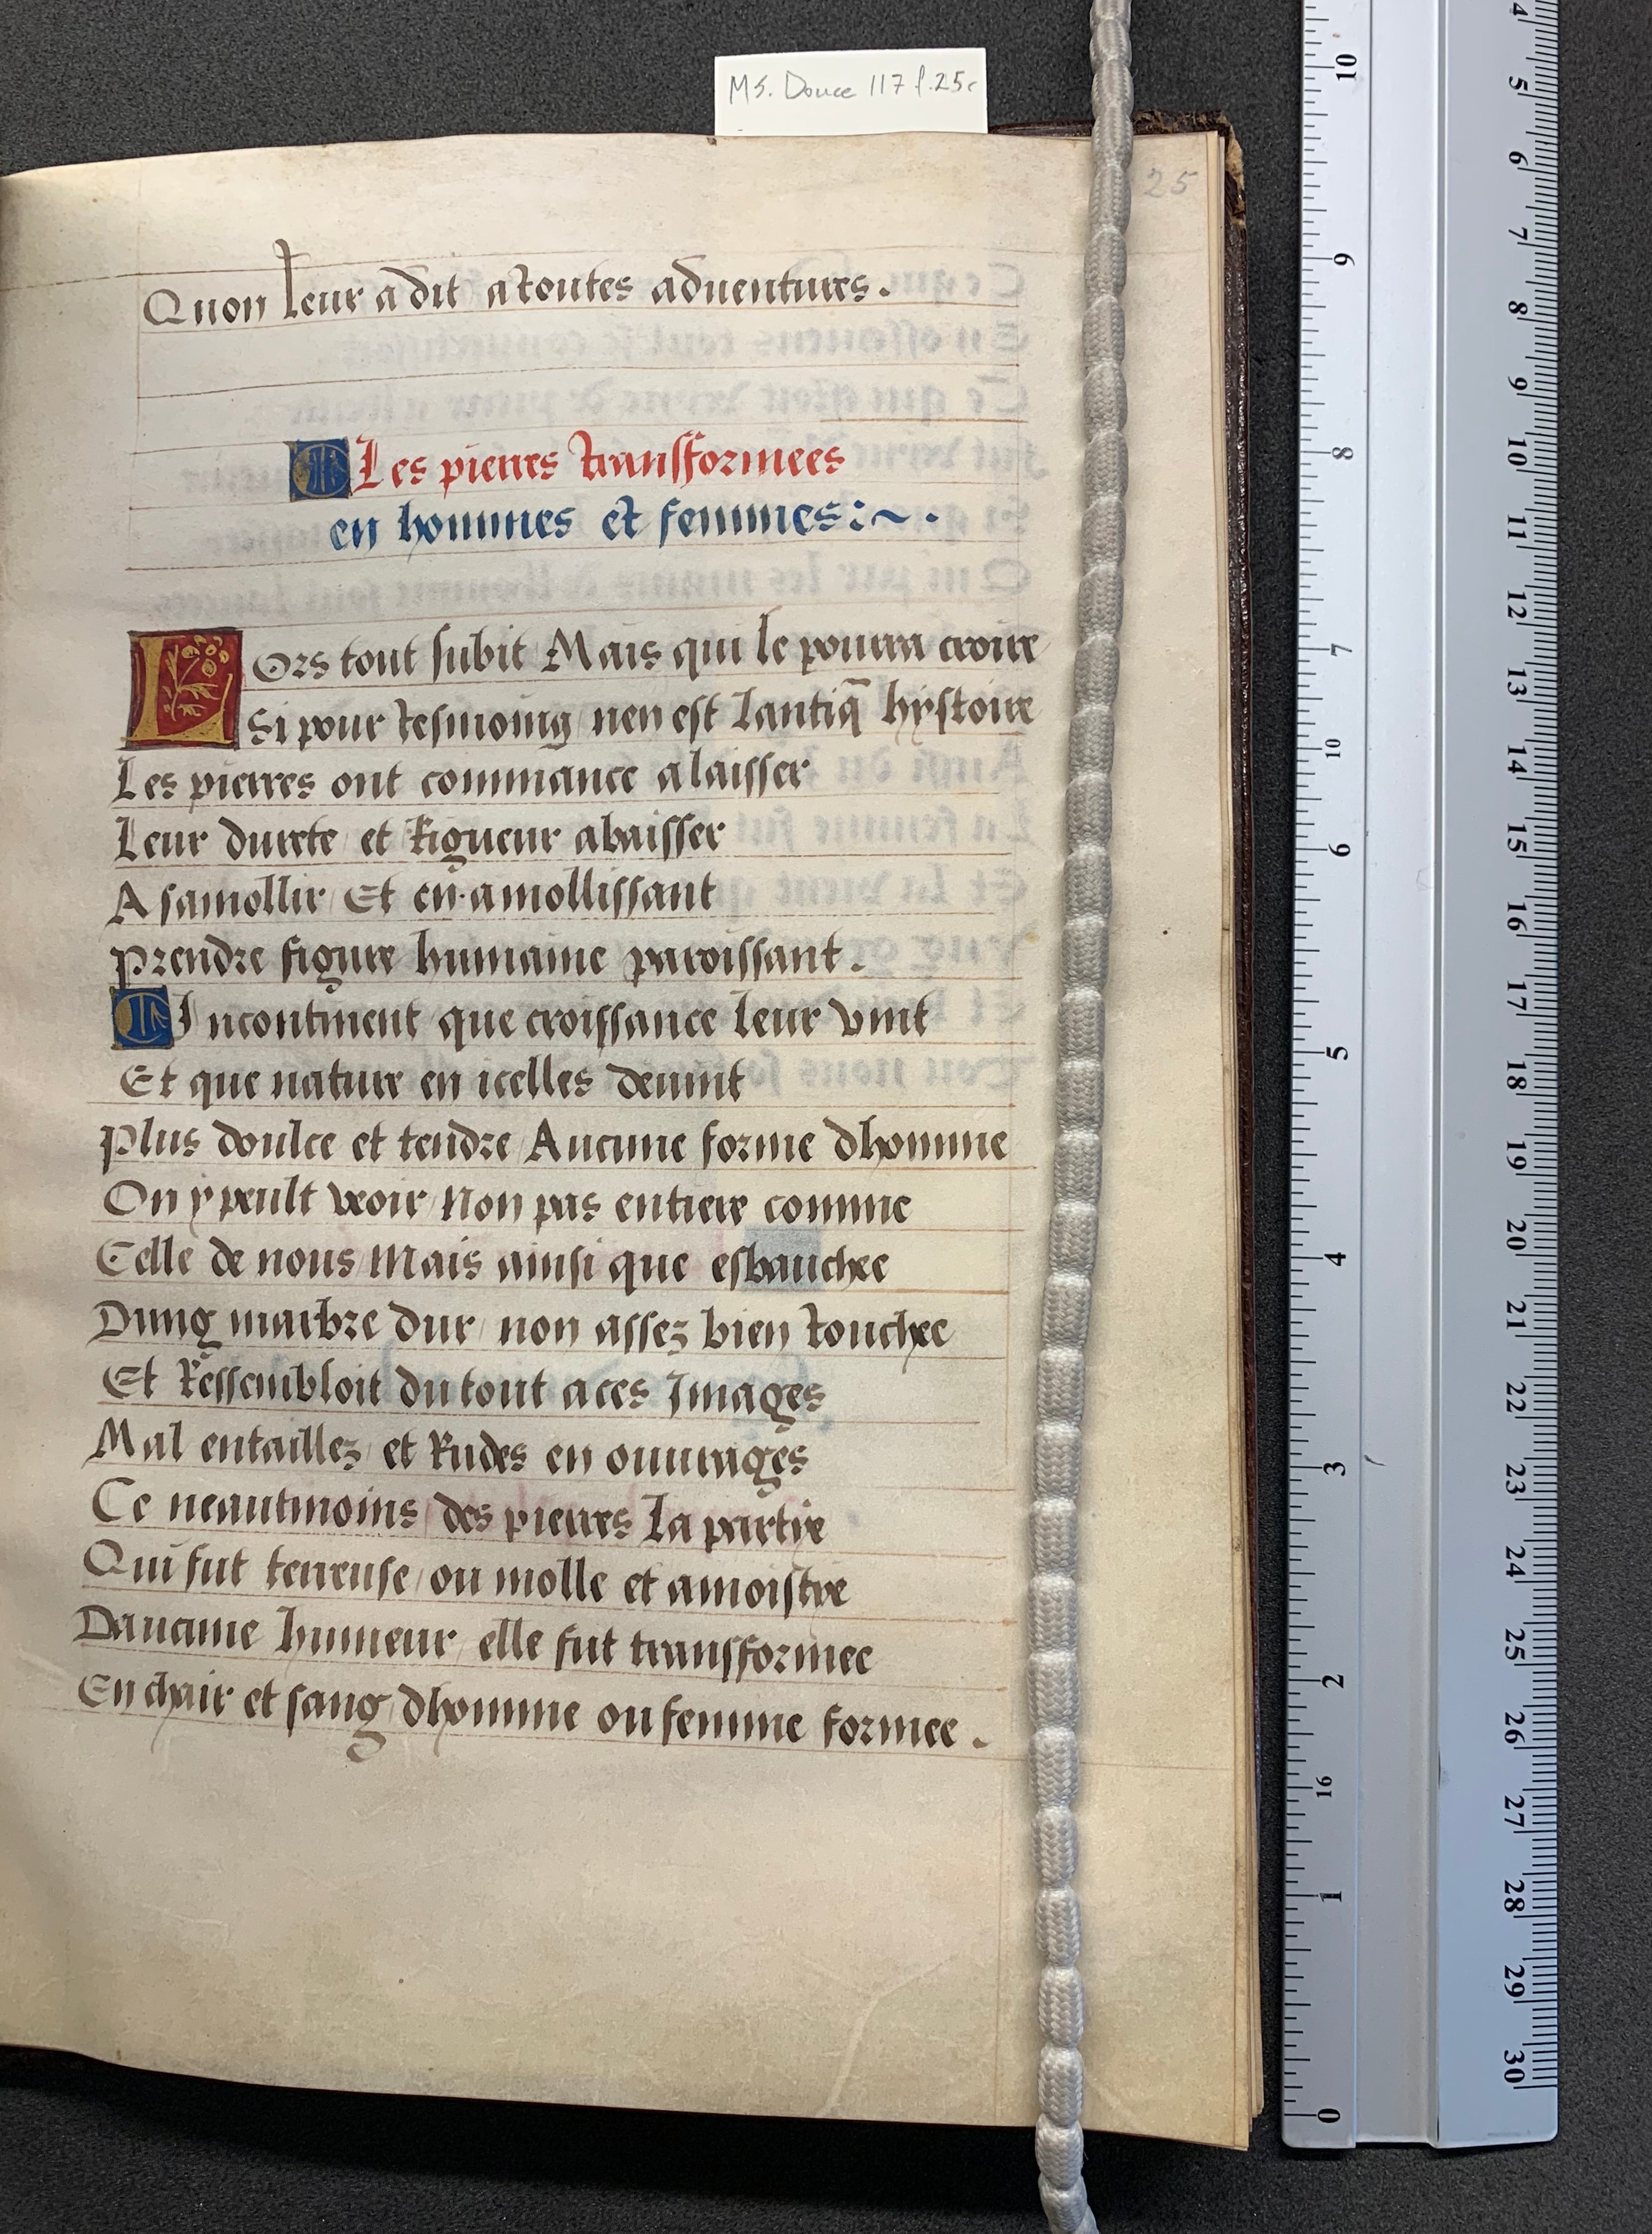 MS. Douce 117 f.25r
25
Quon leur a dit a toutes aduentures.
Les pierres transformees
en hommes et femmes:~.
Lors tout subit Mais qui le pourra croire
Si pour tesmoing nen est lantiq̄ hystoire
Les pierres ont commance a laisser
Leur durete et Rigueur abaisser
A samollir Et en amollissant
Prendre figure humaine paroissant.
Incontinent que croissance leur vint
Et que nature en icelles deuint
Plus doulce et tendre Aucune forme dhomme
On y peult veoir Non pas entiere comme
Celle de nous Mais ainsi que esbauchee
Dung marbre dur non assez bien touchee
Et Ressembloit du tout a ces Images
Mal entaillez et Rudes en ouurages
Ce neautmoins des pierres la partie
Qui fut terreuse ou molle et amoistye
Daucune humeur elle fut transformee
En chair et sang dhomme ou femme formee.